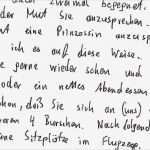 zweimal begegnet.
der Mut Sie anzusprechen.
t eine Prinzessin anzusprech
ich es auf diese Weise.
e gerne wieder sehen und
oder ein nettes Abendessen
chen, daß Sie sich an (uns)
aren 4 Burschen. Nachfolgend
eine Sitzplätze im Flugzeug